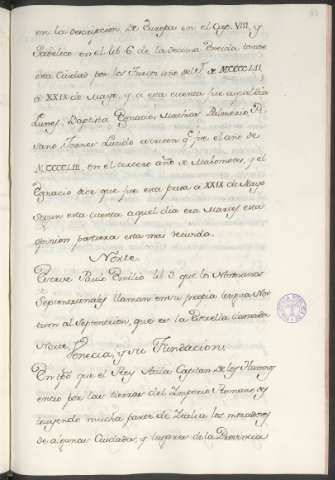 en la descripcion, de Europa en el Cap. VIII, y
Sabelico en el lib 6 de la decima Eneida, tomose
esta Ciudad por los Turcos año del S.r de MCCCCLII,
a XXIX de Mayo, y a esta cuenta fue aquel dia
Lunes, Baptista Egnacio, Mathias Palmerio, Pi
sano, Joanes Lucido escriven q.e fue el año de
MCCCCLIII, en el tercero año de Mahometes, y el
Egnacio dice que fue esta presa a XXIX de Mayo
segun esta cuenta aquel dia era Martes esta
opinion parecera esta mas recivida.
Norte.
Escrive Paulo Emilio lib 3 que los Normanos
Septentrionales llaman en su propia lengua Nor
al Septentrion, que es la Estrella llamada
Norte.
Venecia, y su Fundacion.
En que el Rey Atila Capitan de los Hunnos
entro por las tierras del Imperio Romano des
truyendo mucha parte de Italia los moradores
de algunas Ciudades, y lugares de la Provincia